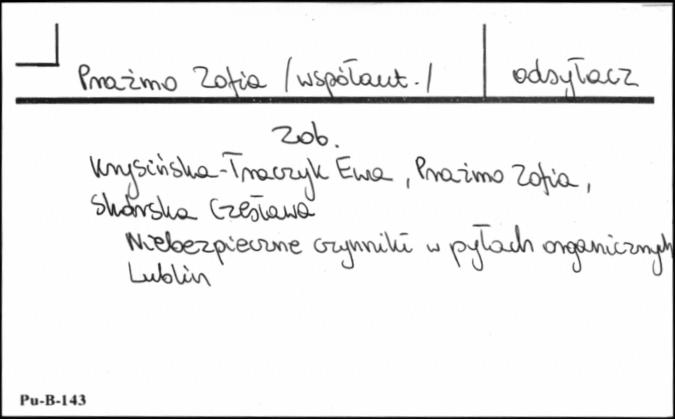 Prażmo Zofia /współaut./ odsyłacz
Zob.
Krysińska-Traczyk Ewa, Prażmo Zofia,
Skórska Czesława
Niebezpieczne czynniki w pyłach organicznych
Lublin
Pu-B-143